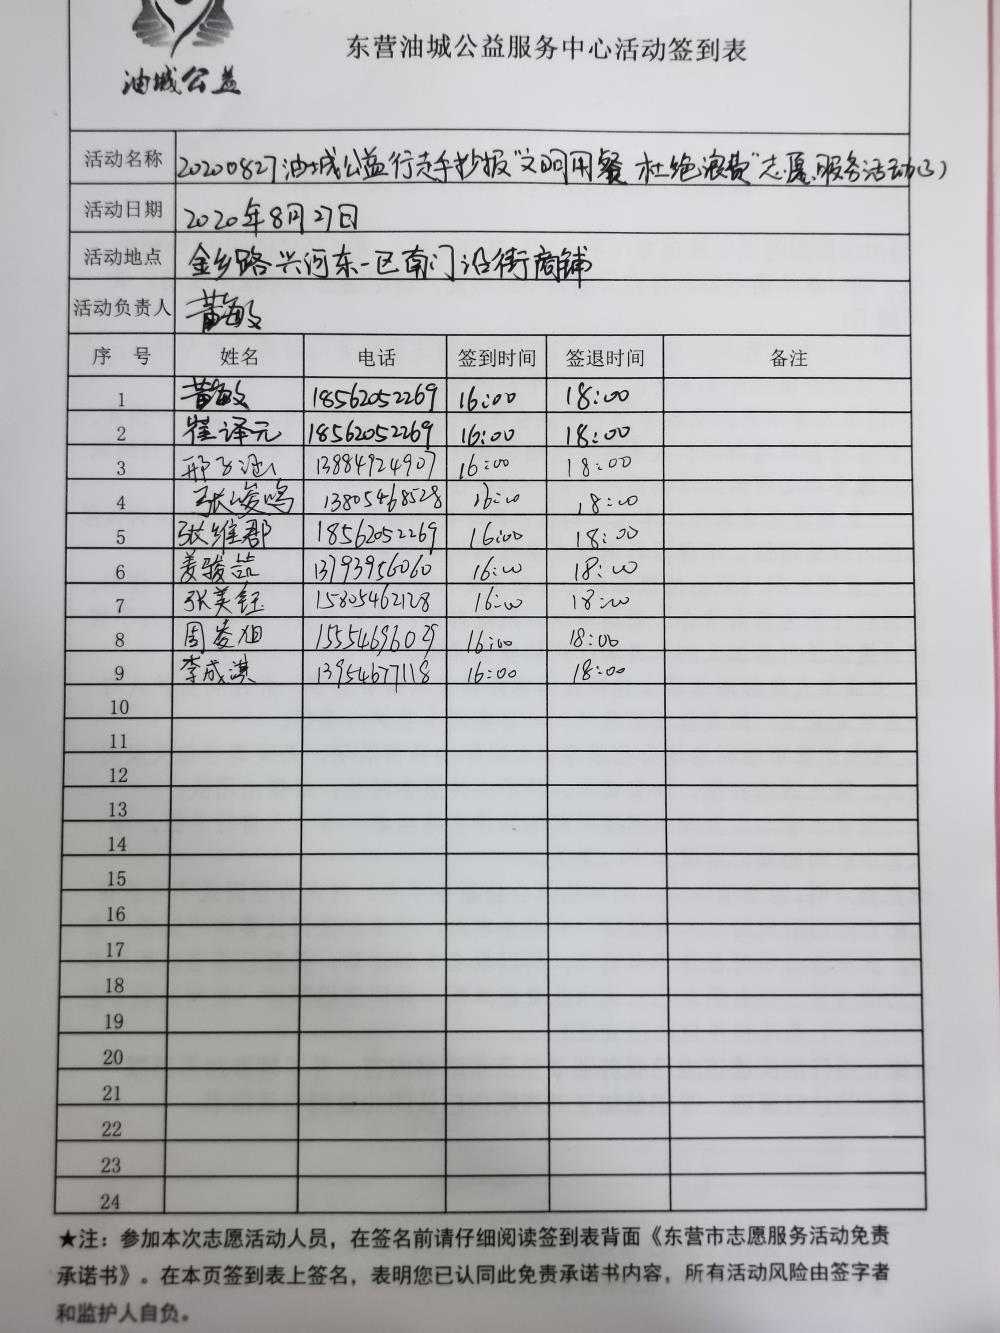 油城公益
东营油城公益服务中心活动签到表
活动名称 20200827油城公益行走手抄报"文明用餐 杜绝浪费"志愿服务活动(3)
活动日期 2020年8月27日
活动地点 金乡路兴河东一区南门沿街商铺
活动负责人 黄敏
序 号 姓名 电话 签到时间 签退时间 备注
1 黄敏 18562052269 16:00 18:00
2 崔译元 18562052269 16:00 18:00
3 邢子涵 13884924907 16:00 18:00
4 张峻鸣 13805468528 16:00 18:00
5 张维郡 18562052269 16:00 18:00
6 姜骏喆 13793956060 16:00 18:00
7 张美钰 15805462128 16:00 18:00
8 周 15554696029 16:00 18:00
9 李成淇 13954677118 16:00 18:00
10
11
12
13
14
15
16
17
18
19
20
21
22
23
24
★注：参加本次志愿活动人员，在签名前请仔细阅读签到表背面《东营市志愿服务活动免责
承诺书》。在本页签到表上签名，表明您已认同此免责承诺书内容，所有活动风险由签字者
和监护人自负。